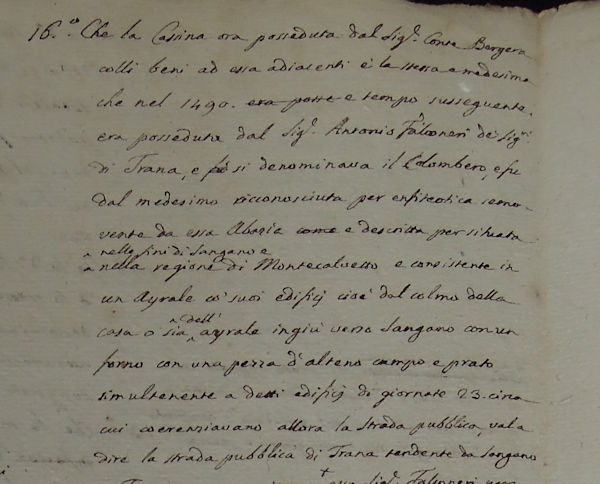 16.° Che la Cassina ora posseduta dal Sig.r Conte Bergera
colli beni ad essa adiacenti è la stessa e medesima
che nel 1490. era posse e tempo susseguente
era posseduta dal Sig.r Antonio Falconeri de Sig.ri
di Trana, e si denominava il Colombero, e fu
dal medesimo riconosciuta per enfiteotica semo-
vente da essa Abazia come e descritta per situata
nelle fini di Sangano e
nella regione di Montecalvetto e consistente in
un Ayrale co' suoi edificj cioè dal colmo della
casa o sia dell' ayrale ingiù verso Sangano con un
forno con una pezza d'alteno campo e prato
simultenente a detti edificj di giornate 23. circa
cui coerenziavano allora la strada pubblica, val a
dire la strada pubblica di Trana tendente da Sangano
Sig.r Falconeri